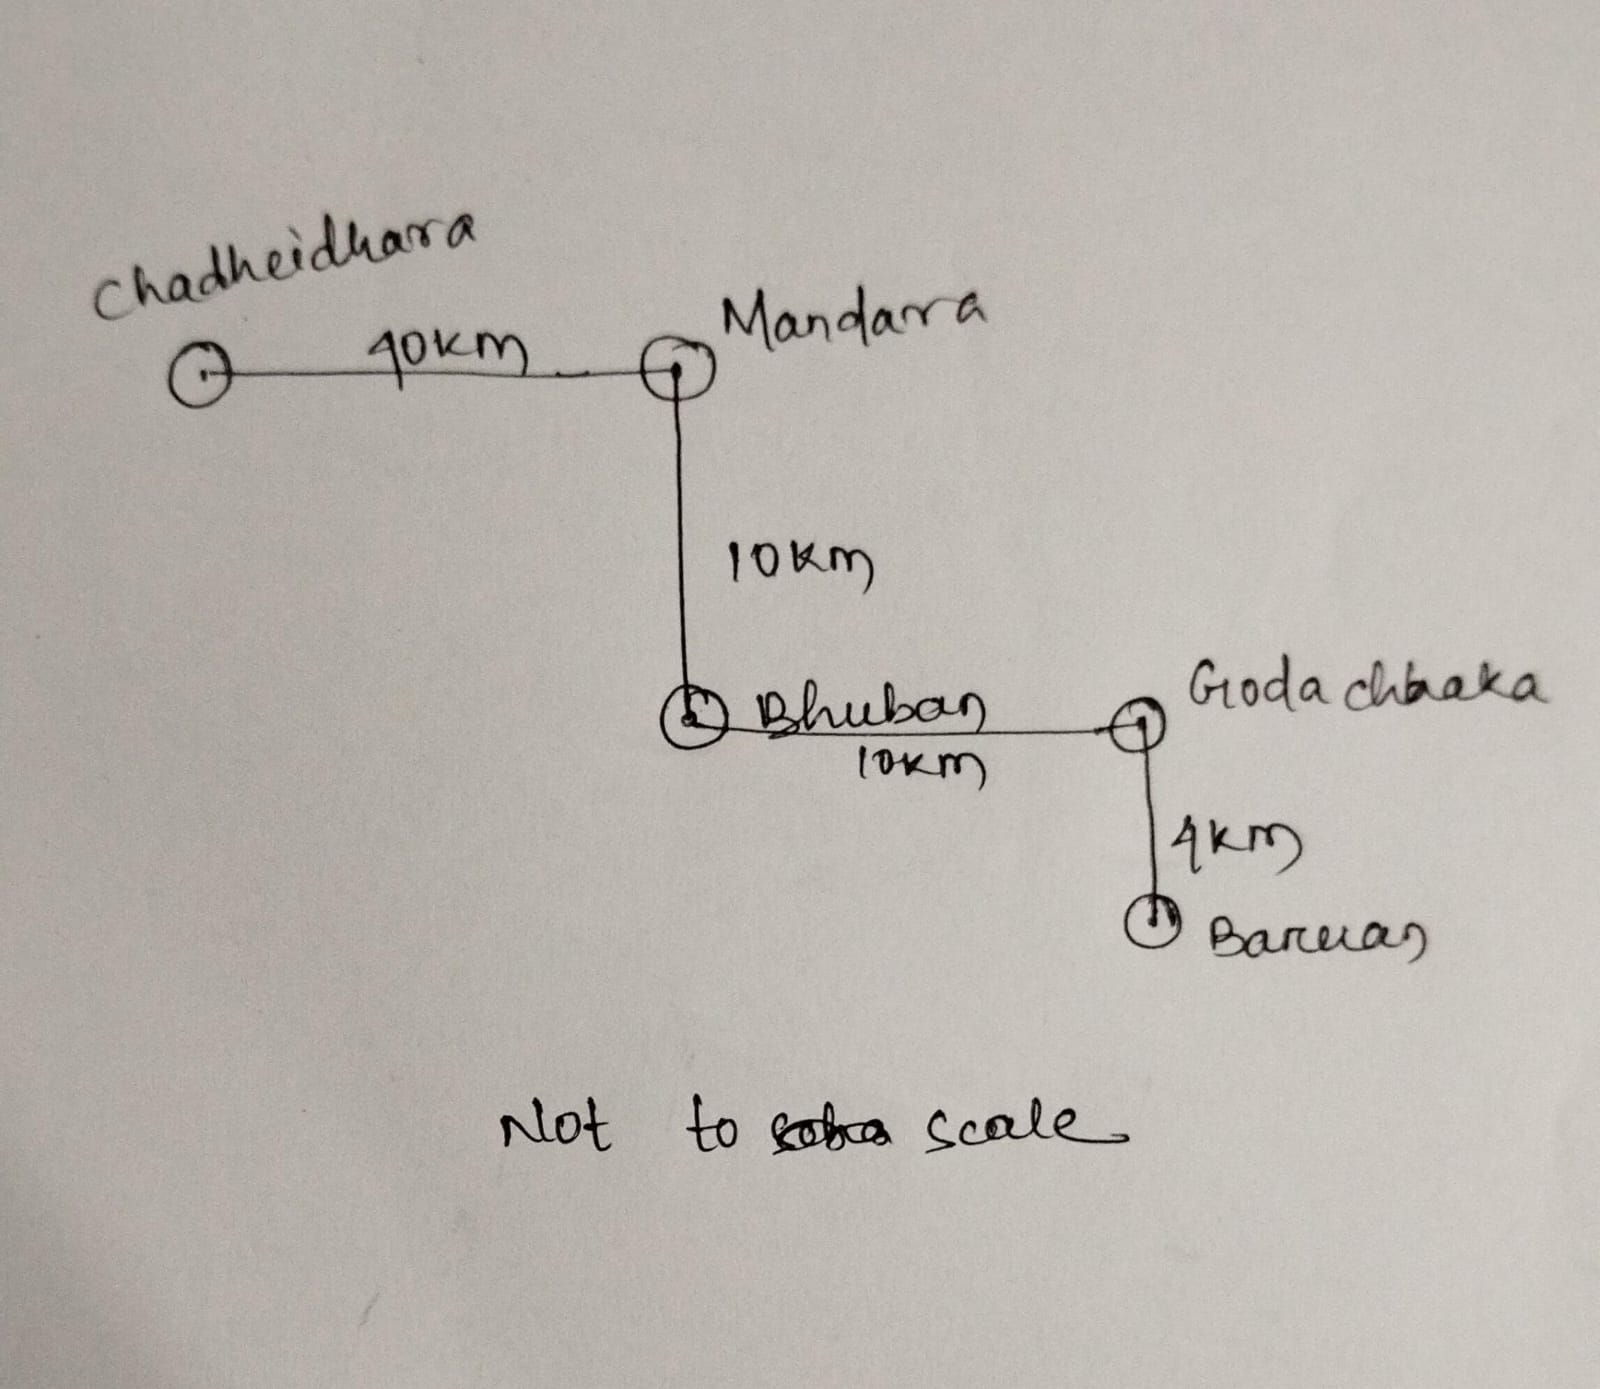 Chadheidhara
40km
Mandara
10km
Bhuban
10km
Goda chhaka
4km
Baruan
Not to scale